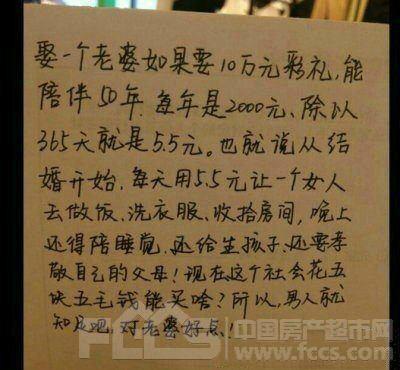 娶一个老婆如果要10万元彩礼,能
陪伴50年.每年是2000元、除以
365天就是5.5元。也就说从结
婚开始.每天用5.5元让一个女人
去做饭、洗衣服、收拾房间,晚上
还得陪睡觉.还给生孩子、还要孝
敬自己的父母!现在这个社会花五
块五毛钱能买啥?所以,男人就
知足吧.对老婆好点!
中国房产超市网
FCCS www.fccs.com